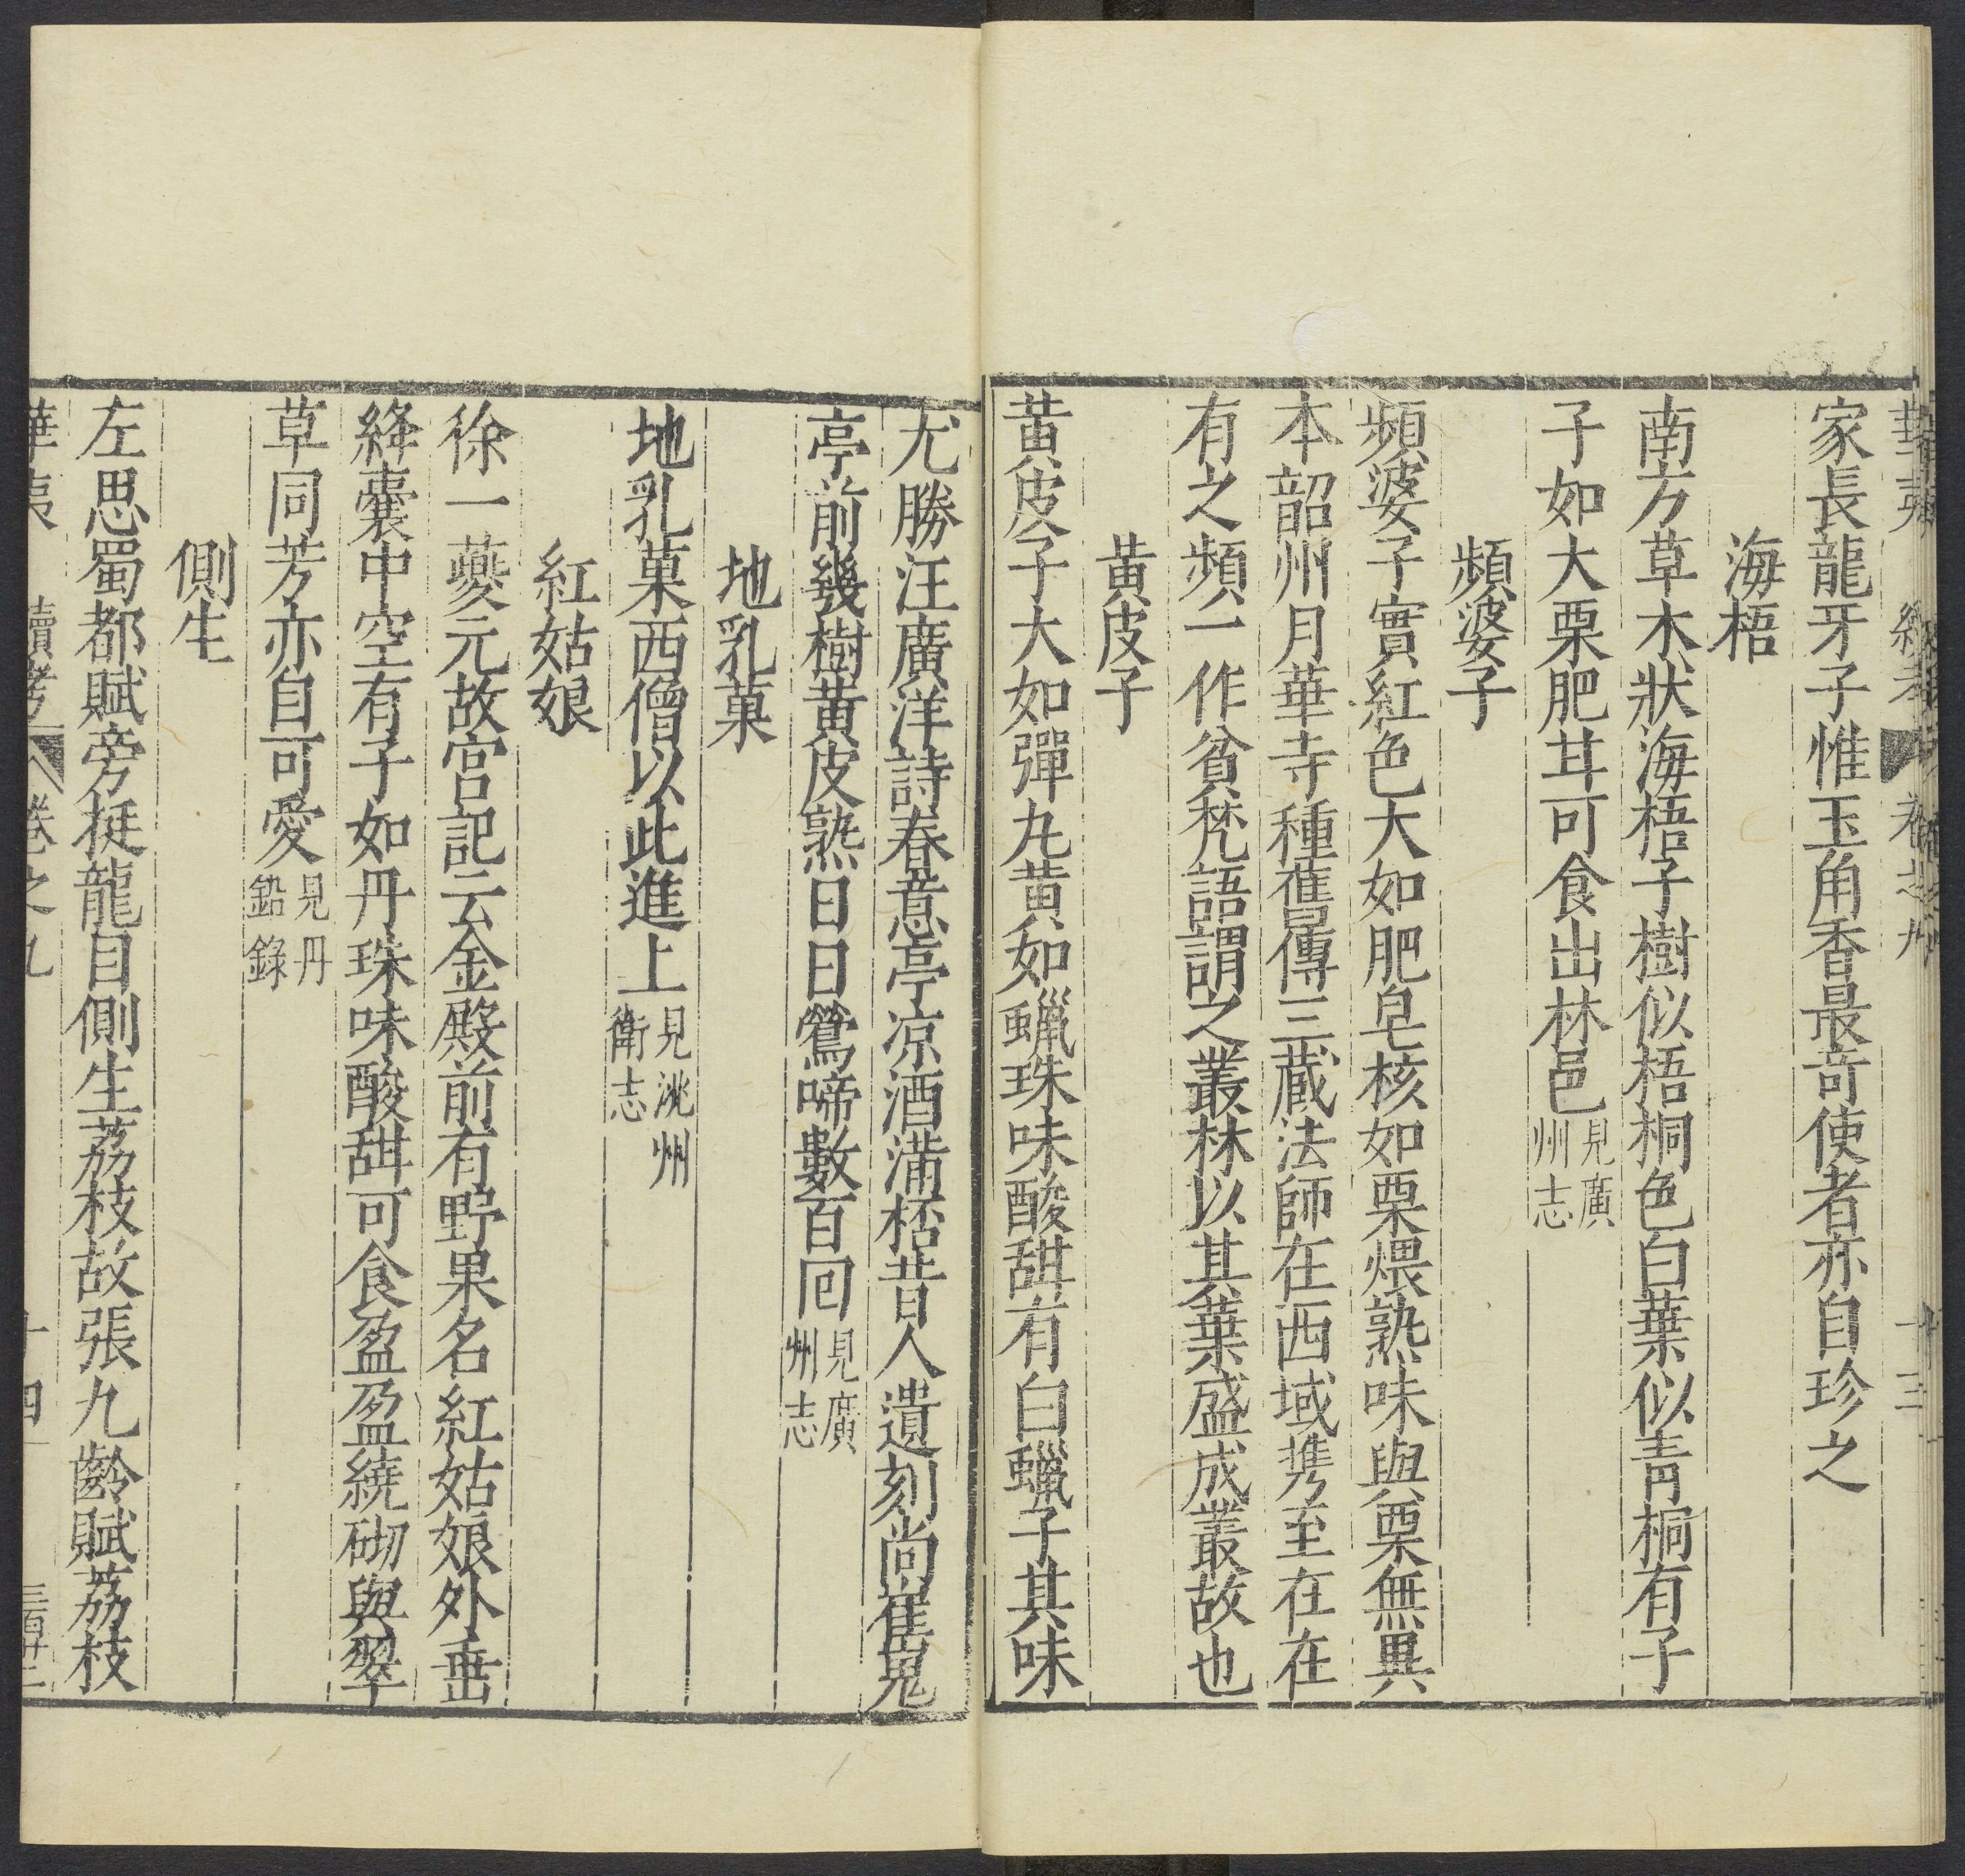 家長龍牙子惟玉角香最竒使者亦自珍之
海梧
南方草木狀海梧子樹似梧桐色白葉似青桐有子
子如大栗肥甘可食出林邑見廣州志
頻婆子
頻婆子實紅色大如肥皂核如栗煨熟味與栗無異
本韶州月華寺種舊傳三藏法師在西域携至在在
有之頻一作貧梵語謂之叢林以其葉盛成叢故也
黄皮子
黄皮子大如彈丸黄如蠟珠味酸甜有白蠟子其味
尤勝汪廣洋詩春意亭凉酒满桮昔人遺刻尚崔嵬
亭前幾樹黄皮熟日日鶯啼數百回見廣州志
地乳菓
地乳菓西僧以此進上見洮州衛志
紅姑娘
徐一夔元故宫記云金殿前有野果名紅姑娘外垂
絳囊中空有子如丹珠味酸甜可食盈盈繞砌與翠
草同芳亦自可愛見丹鉛錄
側生
左思蜀都賦旁挺龍目側生荔枝故張九齡賦荔枝
華夷 續考 卷之九 十四